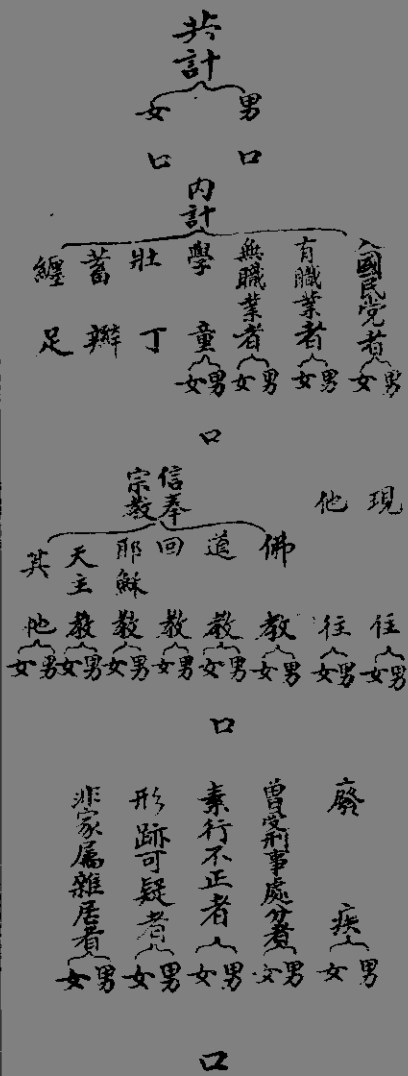 共計
男 女
口 口
內計
入國民党者 男 女
有職業者 男 女
無職業者 男 女
學童 男 女
壯丁
蓄辮
纏足
口
現住 男 女
他往 男 女
信奉宗教
佛教 男 女
道教 男 女
回教 男 女
耶穌教 男 女
天主教 男 女
其他 男 女
口
廢疾 男 女
曾受刑事處分者 男 女
素行不正者 男 女
形跡可疑者 男 女
非家屬雜居者 男 女
口